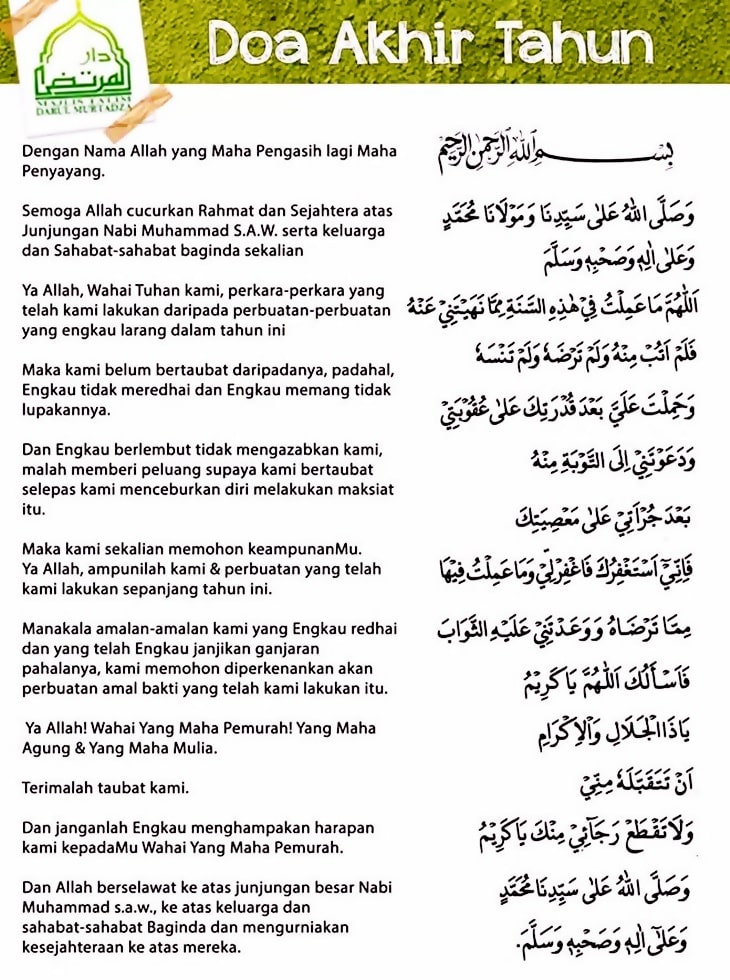 دار
المرتضى
MAJLIS TA'LIM
DARUL MURTADZA
Doa Akhir Tahun
Dengan Nama Allah yang Maha Pengasih lagi Maha
Penyayang.
Semoga Allah cucurkan Rahmat dan Sejahtera atas
Junjungan Nabi Muhammad S.A.W. serta keluarga
dan Sahabat-sahabat baginda sekalian
Ya Allah, Wahai Tuhan kami, perkara-perkara yang
telah kami lakukan daripada perbuatan-perbuatan
yang engkau larang dalam tahun ini
Maka kami belum bertaubat daripadanya, padahal,
Engkau tidak meredhai dan Engkau memang tidak
lupakannya.
Dan Engkau berlembut tidak mengazabkan kami,
malah memberi peluang supaya kami bertaubat
selepas kami menceburkan diri melakukan maksiat
itu.
Maka kami sekalian memohon keampunanMu.
Ya Allah, ampunilah kami & perbuatan yang telah
kami lakukan sepanjang tahun ini.
Manakala amalan-amalan kami yang Engkau redhai
dan yang telah Engkau janjikan ganjaran
pahalanya, kami memohon diperkenankan akan
perbuatan amal bakti yang telah kami lakukan itu.
Ya Allah! Wahai Yang Maha Pemurah! Yang Maha
Agung & Yang Maha Mulia.
Terimalah taubat kami.
Dan janganlah Engkau menghampakan harapan
kami kepadaMu Wahai Yang Maha Pemurah.
Dan Allah berselawat ke atas junjungan besar Nabi
Muhammad s.a.w., ke atas keluarga dan
sahabat-sahabat Baginda dan mengurniakan
kesejahteraan ke atas mereka.
بِسْمِ اللهِ الرَّحْمٰنِ الرَّحِيْمِ
وَصَلَّى اللهُ عَلٰى سَيِّدِنَا وَمَوْلَانَا مُحَمَّدٍ
وَعَلٰى اٰلِهٖ وَصَحْبِهٖ وَسَلَّمَ
اَللّٰهُمَّ مَا عَمِلْتُ فِيْ هٰذِهِ السَّنَةِ مِمَّا نَهَيْتَنِيْ عَنْهُ
فَلَمْ اَتُبْ مِنْهُ وَلَمْ تَرْضَهُ وَلَمْ تَنْسَهُ
وَحَمِلْتَ عَلَيَّ بَعْدَ قُدْرَتِكَ عَلٰى عُقُوْبَتِيْ
وَدَعَوْتَنِيْ اِلَى التَّوْبَةِ مِنْهُ
بَعْدَ جُرْاَتِيْ عَلٰى مَعْصِيَتِكَ
فَاِنِّيْ اَسْتَغْفِرُكَ فَاغْفِرْلِيْ وَمَا عَمِلْتُ فِيْهَا
مِمَّا تَرْضَاهُ وَوَعَدْتَنِيْ عَلَيْهِ الثَّوَابَ
فَاَسْأَلُكَ اَللّٰهُمَّ يَا كَرِيْمُ
يَاذَا الْجَلَالِ وَالْاِكْرَامِ
اَنْ تَتَقَبَّلَهُ مِنِّيْ
وَلَا تَقْطَعْ رَجَائِيْ مِنْكَ يَا كَرِيْمُ
وَصَلَّى اللهُ عَلٰى سَيِّدِنَا مُحَمَّدٍ
وَعَلٰى اٰلِهٖ وَصَحْبِهٖ وَسَلَّمَ.